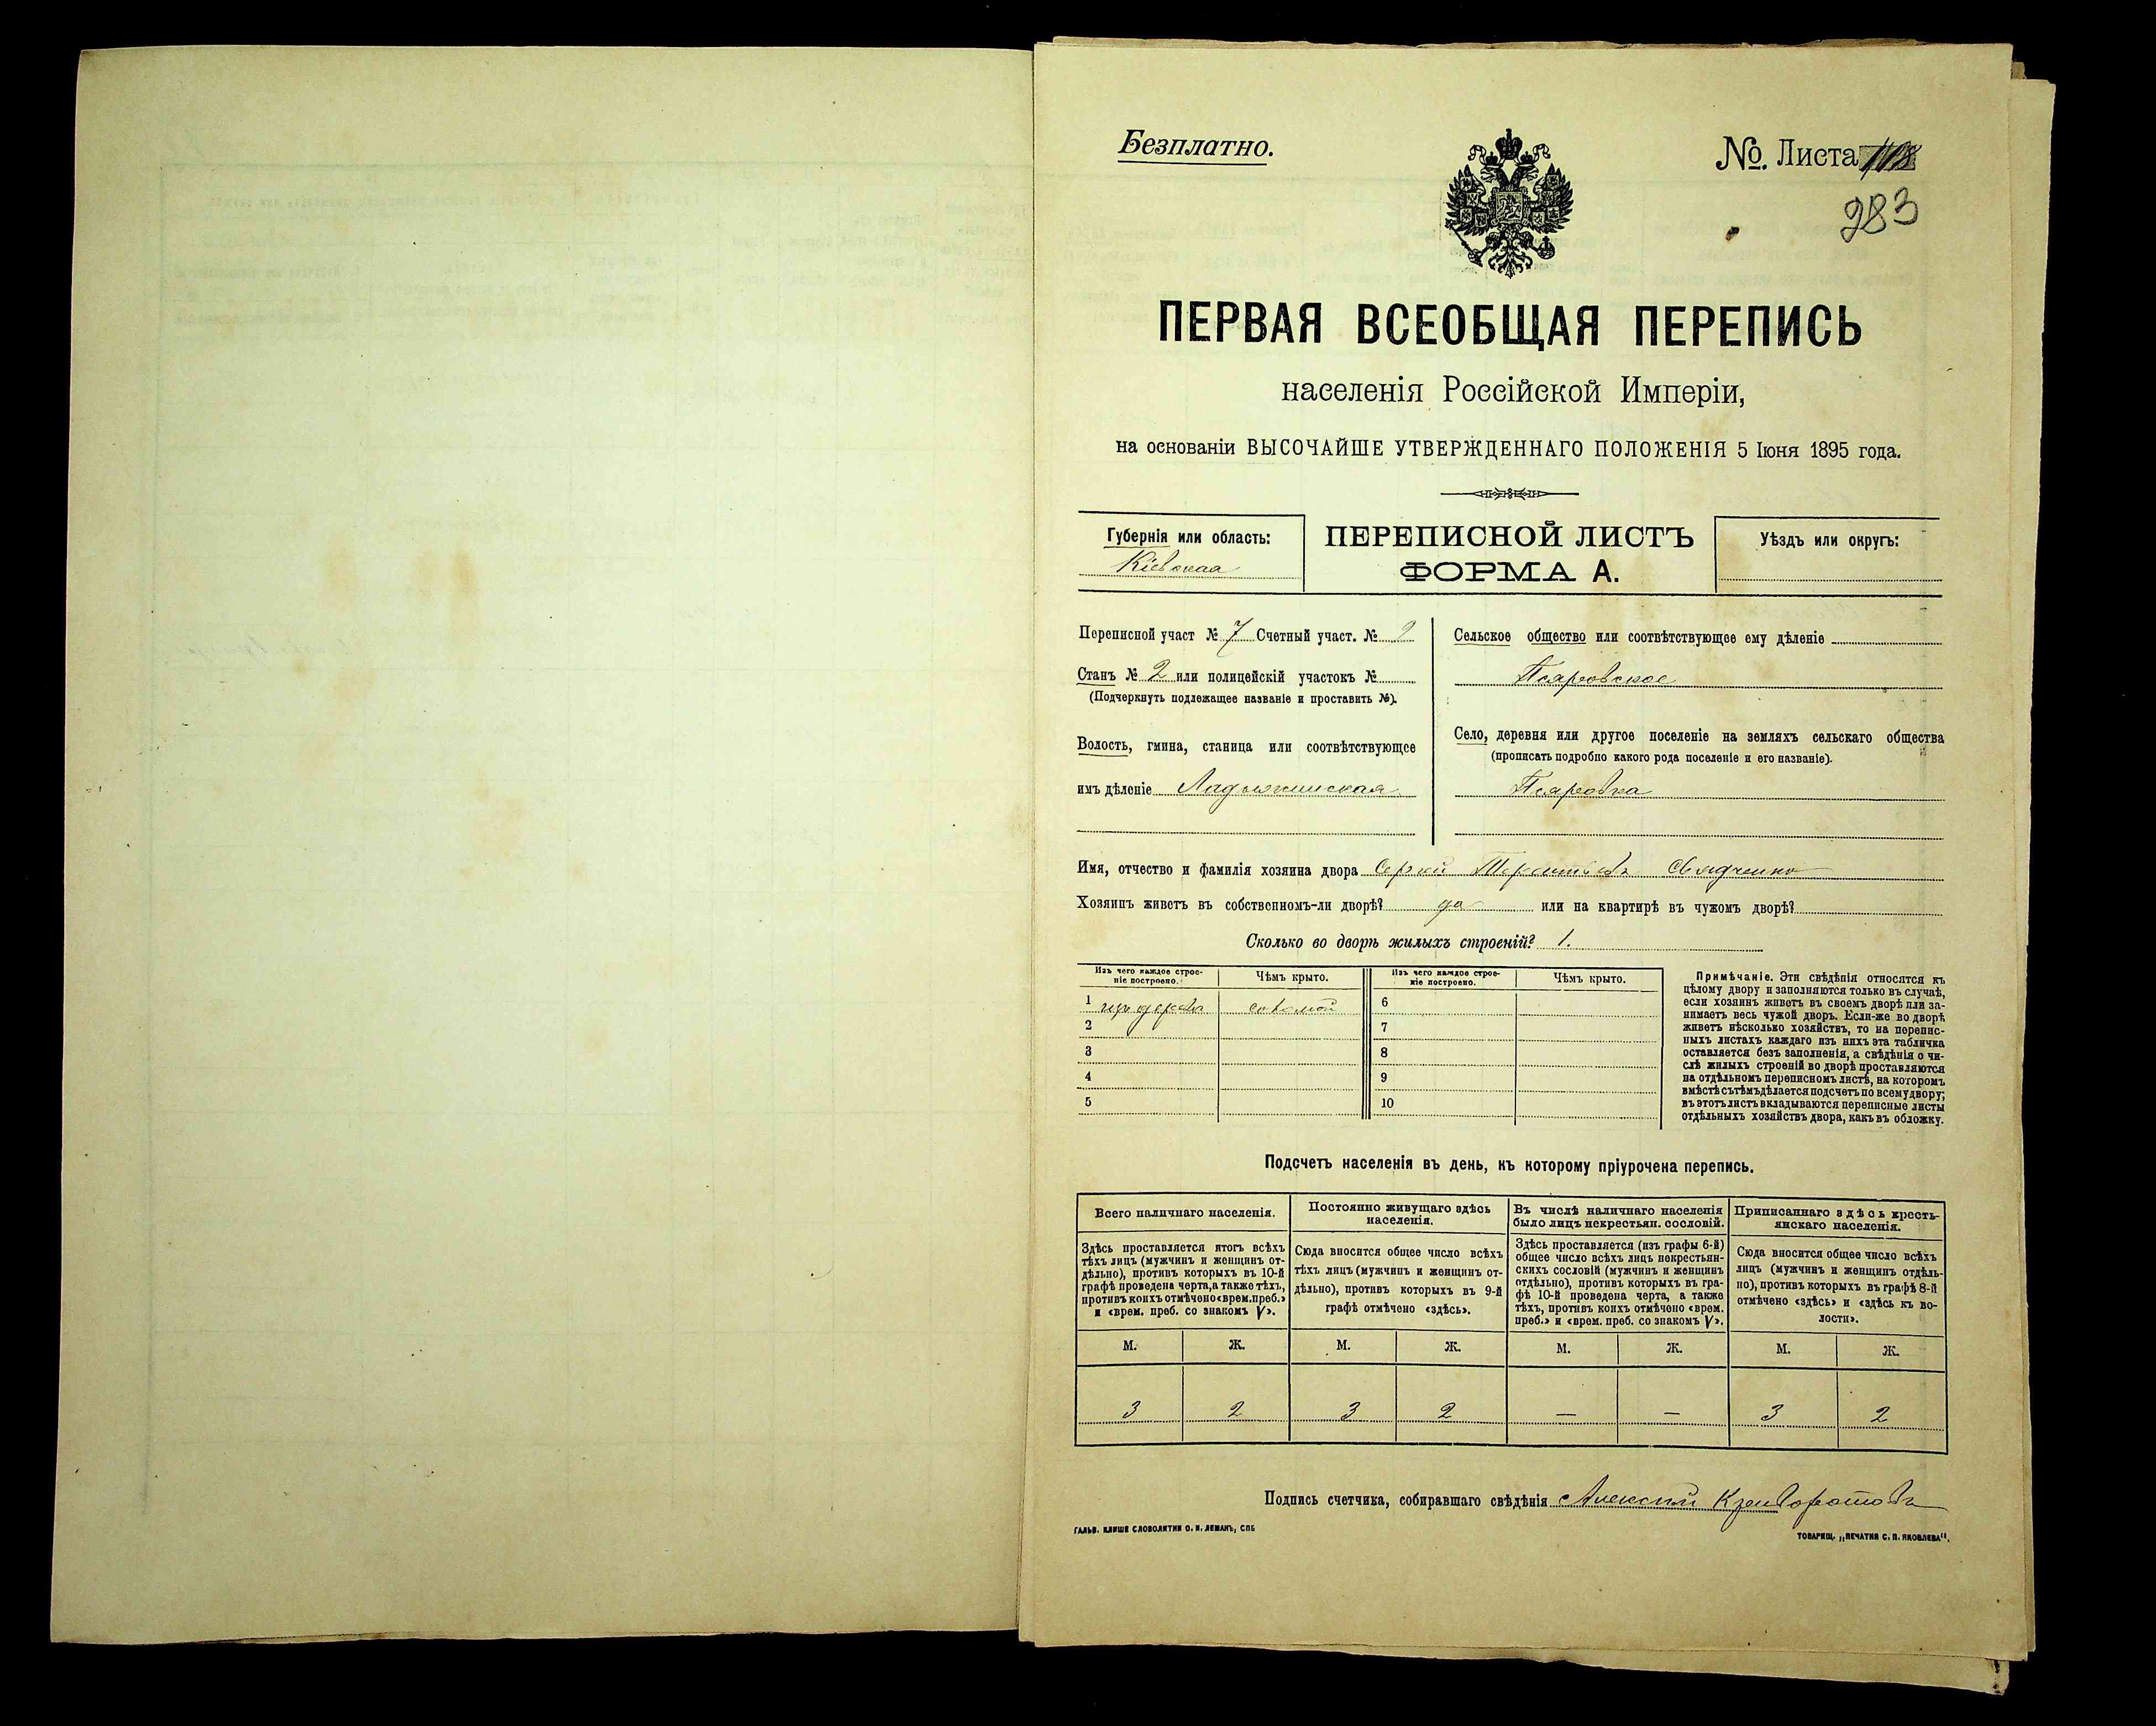 Безплатно.
№. Листа
283
ПЕРВАЯ ВСЕОБЩАЯ ПЕРЕПИСЬ
населенія Россійской Имперіи,
на основаніи ВЫСОЧАЙШЕ УТВЕРЖДЕННАГО ПОЛОЖЕНІЯ 5 Іюня 1895 года.
Губернія или область:
Кіевская
ПЕРЕПИСНОЙ ЛИСТЪ
ФОРМА А.
Уѣздъ или округъ:
Переписной участ № 7 Счетный участ. № 2
Станъ № 2 или полицейскій участокъ №
(Подчеркнуть подлежащее названіе и проставить №).
Волость, гмина, станица или соотвѣтствующее
имъ дѣленіе Ладыжинская
Сельское общество или соотвѣтствующее ему дѣленіе
Псяровское
Село, деревня или другое поселеніе на земляхъ сельскаго общества
(прописать подробно какого рода поселеніе и его названіе).
Псяровка
Имя, отчество и фамилія хозяина двора Сергій Терентіевъ
Хозяинъ живетъ въ собственномъ-ли дворѣ? да или на квартирѣ въ чужомъ дворѣ?
Сколько во дворѣ жилыхъ строеній? 1.
Изъ чего каждое строе-
ніе построено.
Чѣмъ крыто.
Изъ чего каждое строе-
ніе построено.
Чѣмъ крыто.
1 изъ дерева соломой 6
2 7
3 8
4 9
5 10
Примѣчаніе. Эти свѣдѣнія относятся къ
цѣлому двору и заполняются только въ случаѣ,
если хозяинъ живетъ въ своемъ дворѣ или за-
нимаетъ весь чужой дворъ. Если-же во дворѣ
живетъ нѣсколько хозяйствъ, то на перепис-
ныхъ листахъ каждаго изъ нихъ эта табличка
оставляется безъ заполненія, а свѣдѣнія о чи-
слѣ жилыхъ строеній во дворѣ проставляются
на отдѣльномъ переписномъ листѣ, на которомъ
вмѣстѣ съ тѣмъ дѣлается подсчетъ по всему двору;
въ этотъ листъ вкладываются переписные листы
отдѣльныхъ хозяйствъ двора, какъ въ обложку.
Подсчетъ населенія въ день, къ которому пріурочена перепись.
Всего наличнаго населенія.
Здѣсь проставляется итогъ всѣхъ
тѣхъ лицъ (мужчинъ и женщинъ от-
дѣльно), противъ которыхъ въ 10-й
графѣ проведена черта, а также тѣхъ,
противъ коихъ отмѣчено «врем. преб.»
и «врем. преб. со знакомъ V».
Постоянно живущаго здѣсь
населенія.
Сюда вносится общее число всѣхъ
тѣхъ лицъ (мужчинъ и женщинъ от-
дѣльно), противъ которыхъ въ 9-й
графѣ отмѣчено «здѣсь».
Въ числѣ наличнаго населенія
было лицъ некрестьян. сословій.
Здѣсь проставляется (изъ графы 6-й)
общее число всѣхъ лицъ некрестьян-
скихъ сословій (мужчинъ и женщинъ
отдѣльно), противъ которыхъ въ гра-
фѣ 10-й проведена черта, а также
тѣхъ, противъ коихъ отмѣчено «врем.
преб.» и «врем. преб. со знакомъ V».
Приписаннаго здѣсь кресть-
янскаго населенія.
Сюда вносится общее число всѣхъ
лицъ (мужчинъ и женщинъ отдѣль-
но), противъ которыхъ въ графѣ 8-й
отмѣчено «здѣсь» и «здѣсь къ во-
лости».
М. Ж. М. Ж. М. Ж. М. Ж.
3 2 3 2 — — 3 2
Подпись счетчика, собиравшаго свѣдѣнія Алексѣй
ГАЛЬВ. КЛИШЕ СЛОВОЛИТНИ О. И. ЛЕМАНЪ, СПБ
ТОВАРИЩ. „ПЕЧАТНЯ С. П. ЯКОВЛЕВА“.